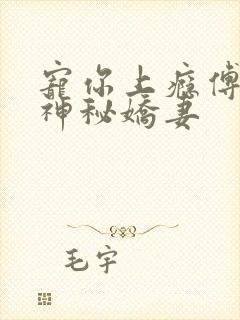 寵你上癮傅
神秘嬌妻
毛宇